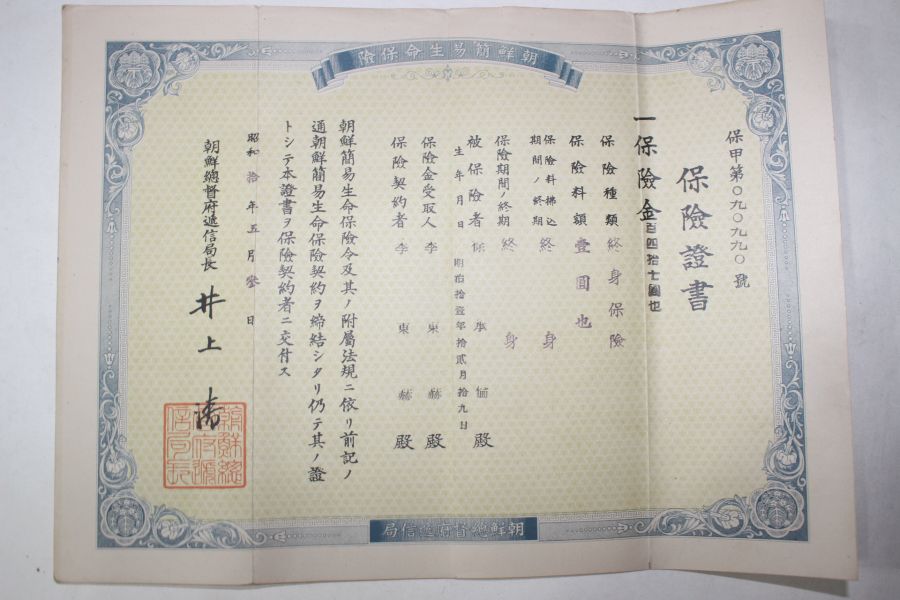 朝鮮簡易生命保險
保甲第〇九〇九九〇號
保險證書
一保險金百四拾七圓也
保險種類 終身保險
保險料額 壹圓也
保險料拂込期間ノ終期 終身
保險期間ノ終期 終身
被保險者 殿
生年月日 明治拾壹年拾貳月拾九日
保險金受取人 李東赫殿
保險契約者 李東赫殿
朝鮮簡易生命保險令及其ノ附屬法規ニ依リ前記ノ
通朝鮮簡易生命保險契約ヲ締結シタリ仍テ其ノ證
トシテ本證書ヲ保險契約者ニ交付ス
昭和拾年五月參日
朝鮮總督府遞信局長 井上清
朝鮮總督府遞信局